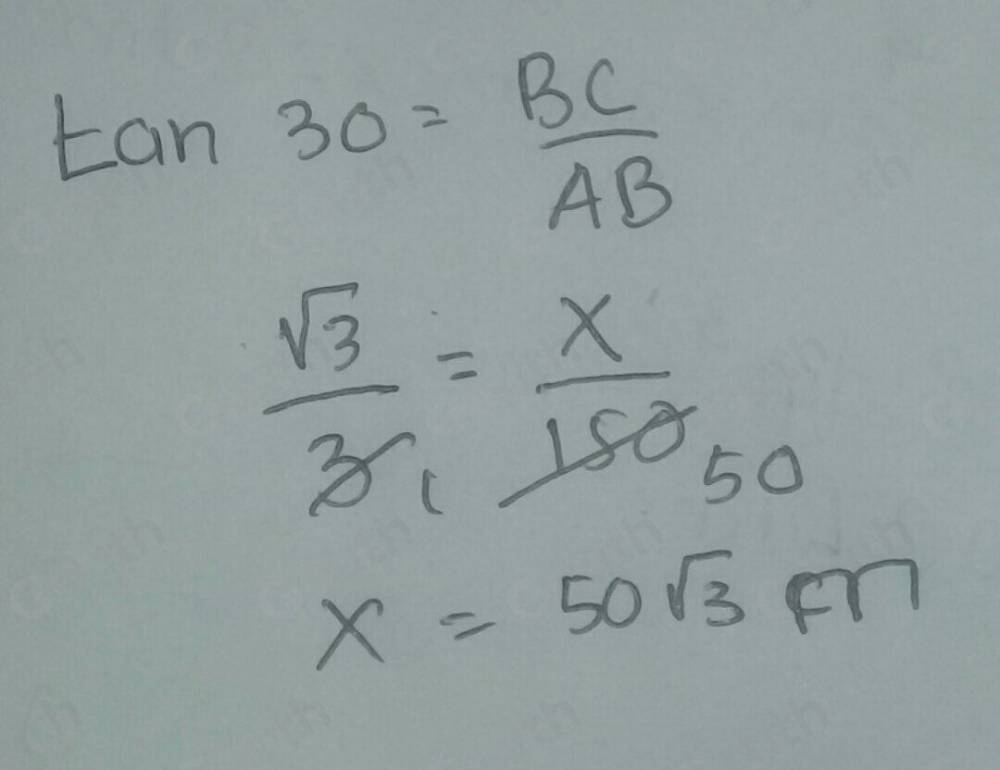 tan 30 = BC/AB
√3/3 1 = X/150 50
X = 50√3 cm